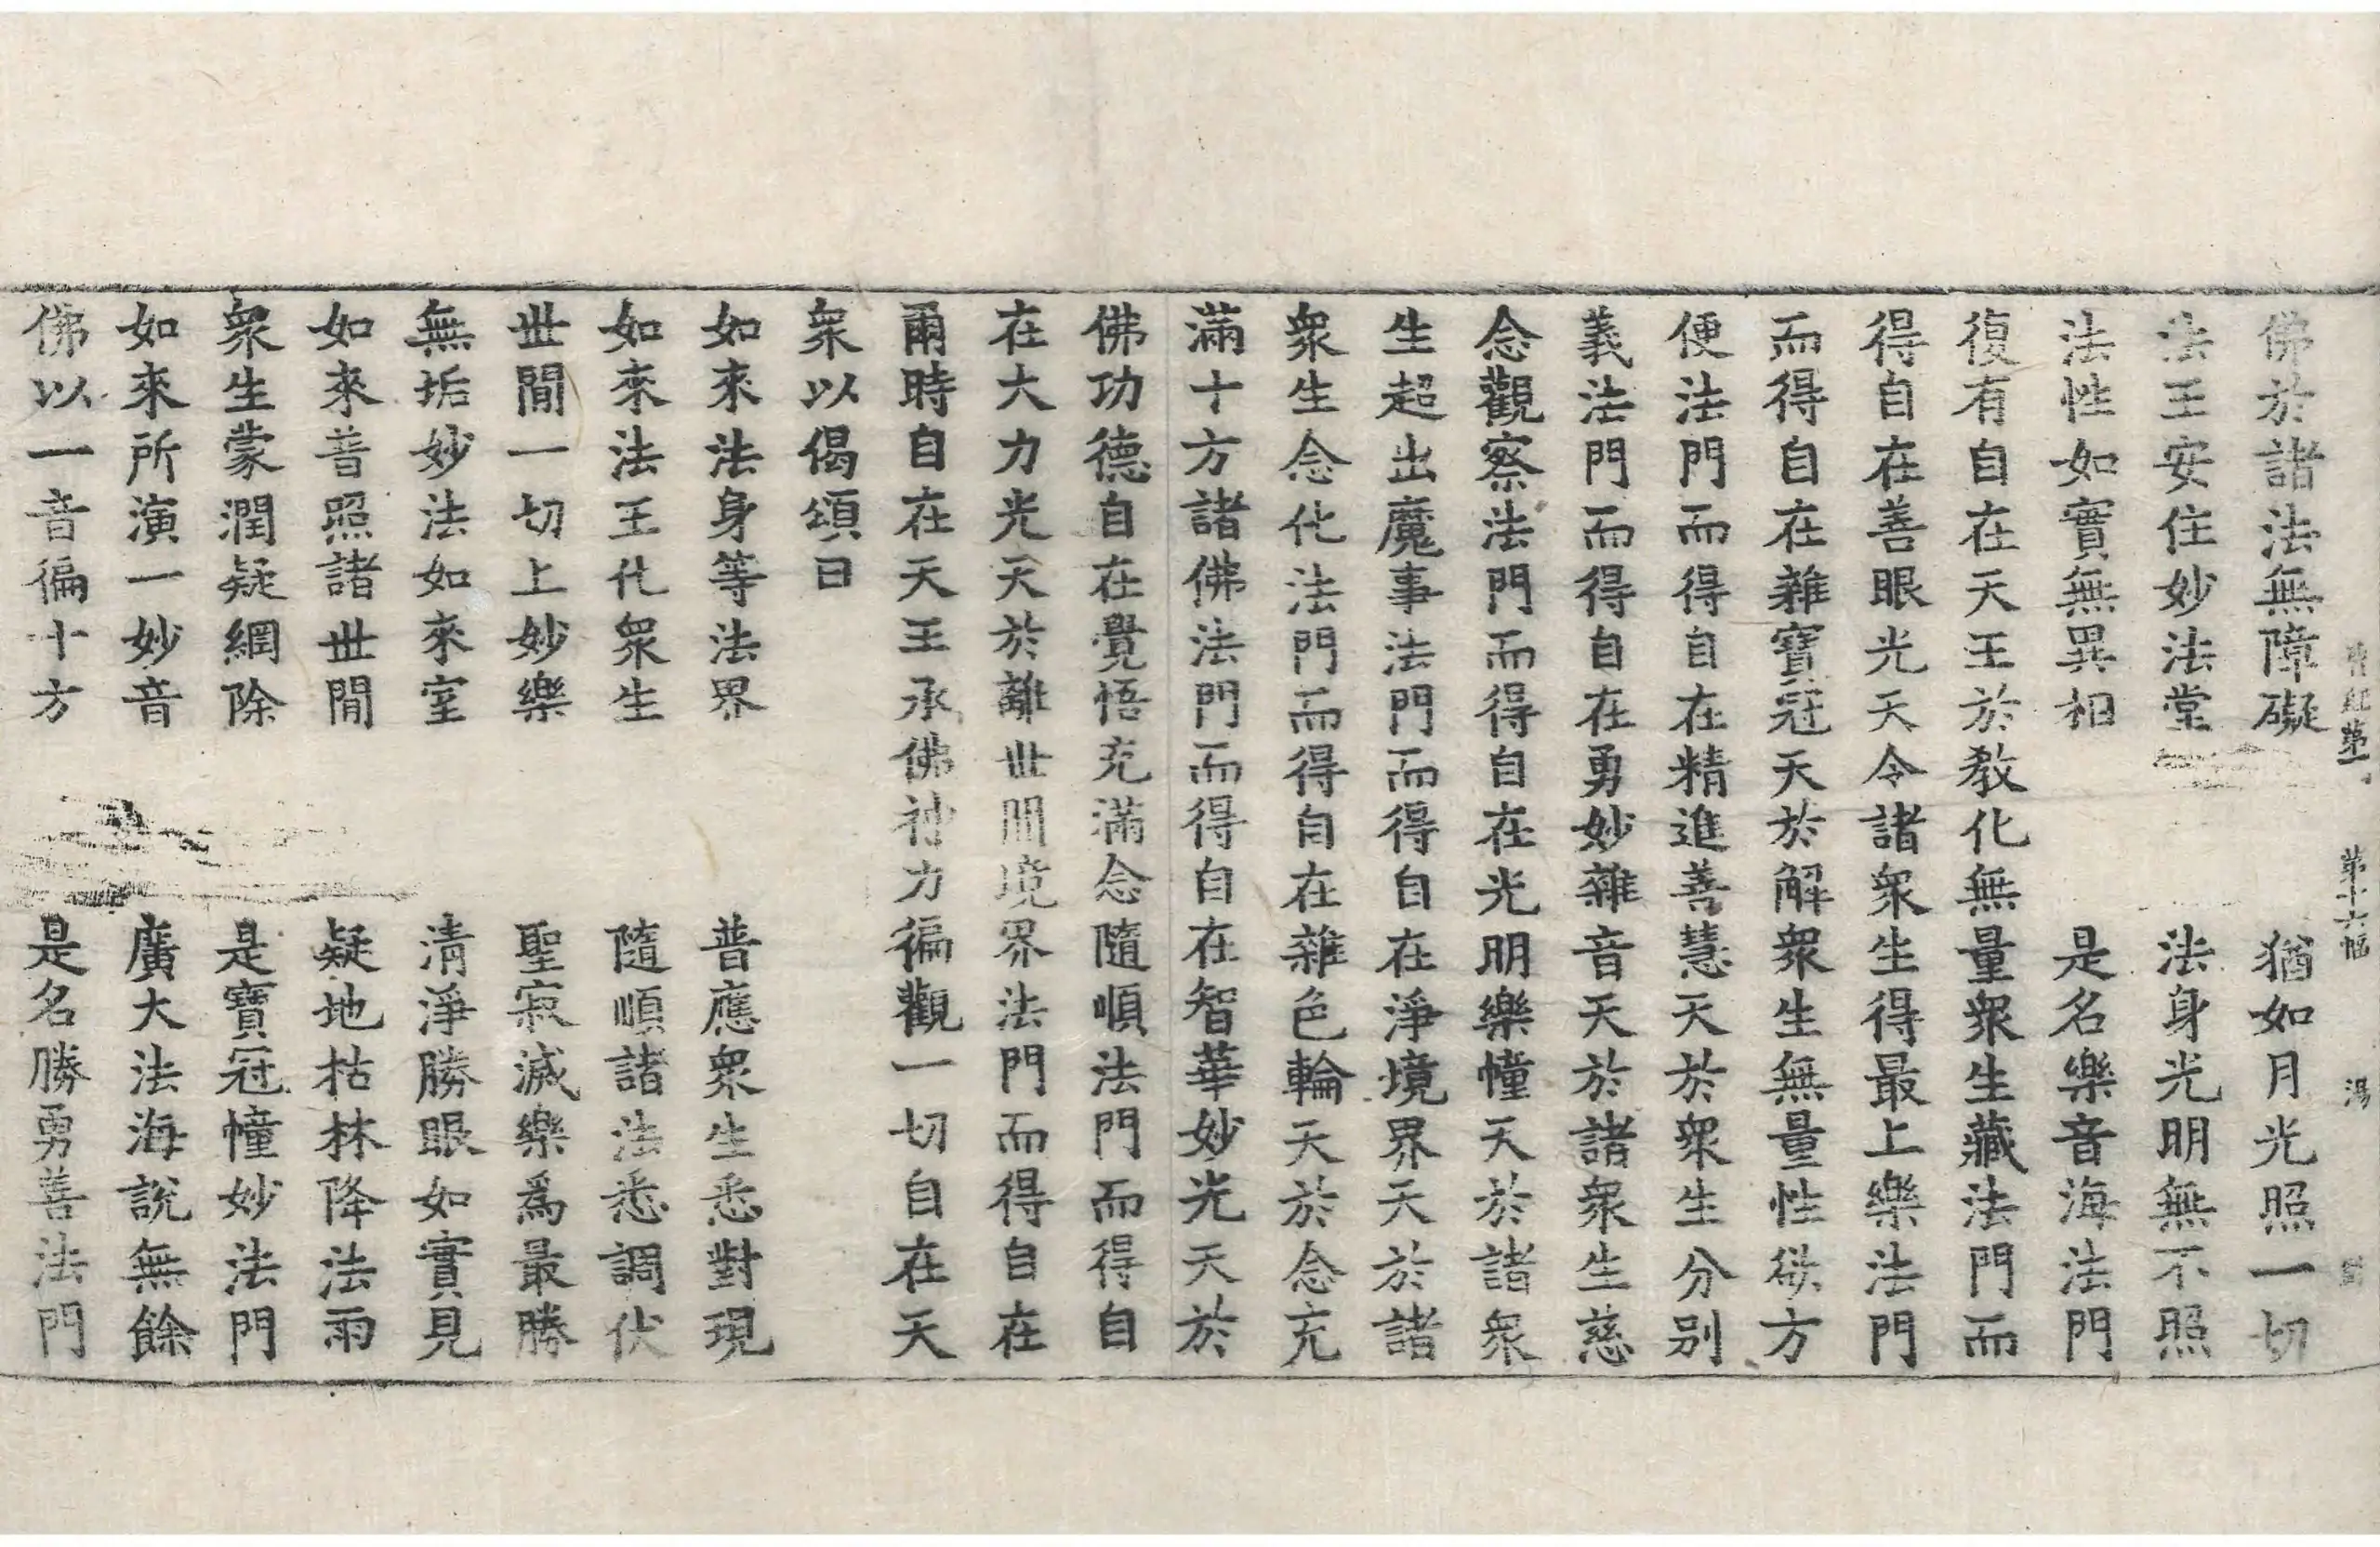 佛於諸法無障礙　猶如月光照一切
法王安住妙法堂　法身光明無不照
法性如實無異相　是名樂音海法門
復有自在天王於教化無量衆生藏法門而
得自在善眼光天令諸衆生得最上樂法門
而得自在雜寶冠天於解衆生無量性欲方
便法門而得自在精進善慧天於衆生分別
義法門而得自在勇妙雜音天於諸衆生慈
念觀察法門而得自在光明樂幢天於諸衆
生超出魔事法門而得自在淨境界天於諸
衆生念化法門而得自在雜色輪天於念充
滿十方諸佛法門而得自在智華妙光天於
佛功德自在覺悟充滿念隨順法門而得自
在大力光天於離世間境界法門而得自在
爾時自在天王承佛神力徧觀一切自在天
衆以偈頌曰
如來法身等法界　普應衆生悉對現
如來法王化衆生　隨順諸法悉調伏
世間一切上妙樂　聖寂滅樂爲最勝
無垢妙法如來室　清淨勝眼如實見
如來普照諸世間　疑地枯林降法雨
衆生蒙潤疑網除　是寶冠幢妙法門
如來所演一妙音　廣大法海說無餘
佛以一音徧十方　是名勝勇善法門